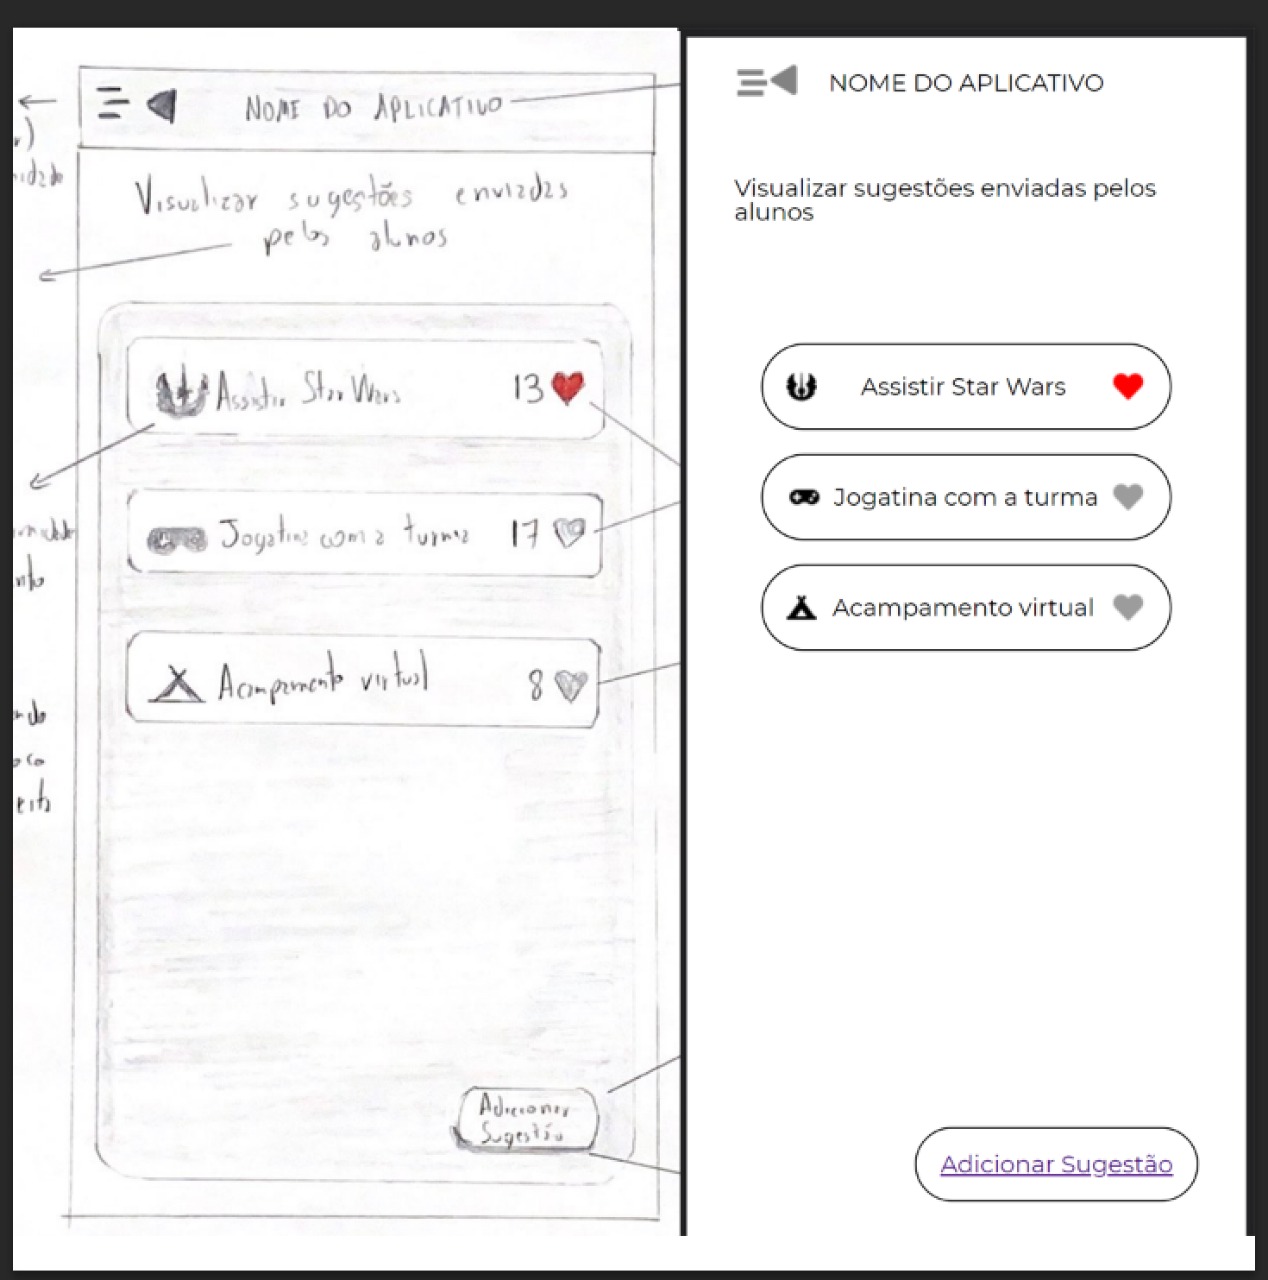 NOME DO APLICATIVO
Visualizar sugestões enviadas
pelos alunos
Assistir Star Wars 13
Jogatina com a turma 17
Acampamento virtual 8
Adicionar
Sugestão
NOME DO APLICATIVO
Visualizar sugestões enviadas pelos
alunos
Assistir Star Wars
Jogatina com a turma
Acampamento virtual
Adicionar Sugestão